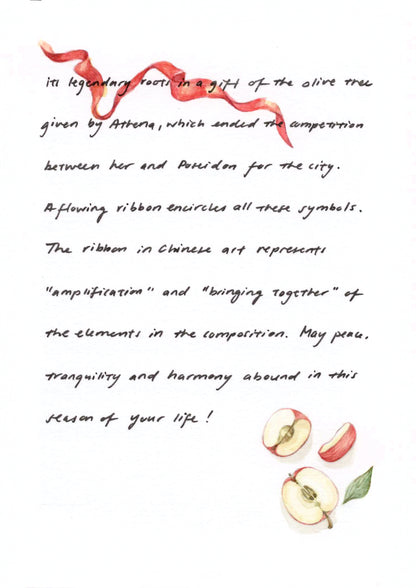 its legendary roots in a gift of the olive tree
given by Athena, which ended the competition
between her and Poseidon for the city.
A flowing ribbon encircles all these symbols.
The ribbon in Chinese art represents
"amplification" and "bringing together" of
the elements in the composition. May peace,
tranquility and harmony abound in this
season of your life!